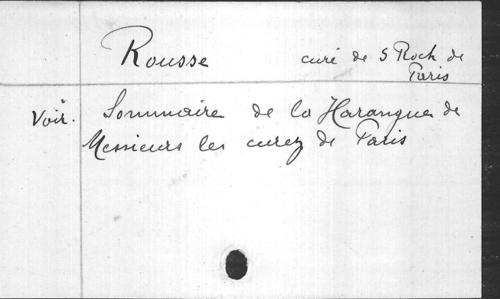 Rousse curé de S Roch de
Paris
Voir. Sommaire de la Harangue de
Messieurs les curez de Paris